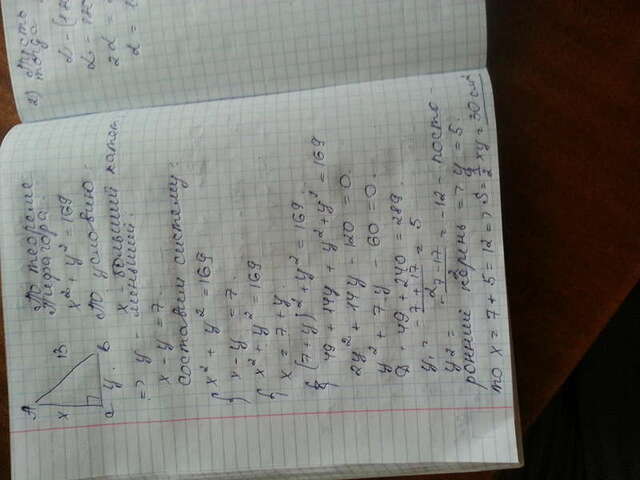 По теореме
Пифагора:
x² + y² = 169
По условию:
x - больший катет
=> y - меньший.
x - y = 7.
составим систему:
{ x² + y² = 169
x - y = 7.
{ x² + y² = 169
x = 7 + y.
{ (7+y)² + y² = 169.
49 + 14y + y² + y² = 169
2y² + 14y - 120 = 0.
y² + 7y - 60 = 0.
D = 49 + 240 = 289.
y₁ = (-7 + 17)/2 = 5
y₂ = (-7 - 17)/2 = -12 - посто-
ронний корень => y = 5.
то x = 7 + 5 = 12 => S = 1/2 xy = 30 см²
A
13
x
C y B
2) Пусть
тогда